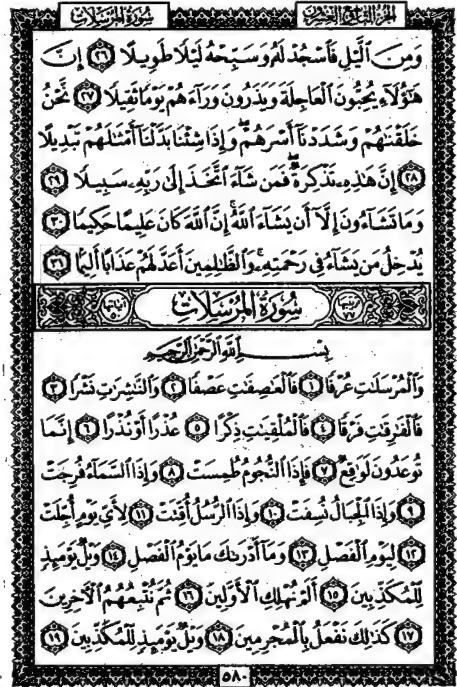 سُورَةُ المُرْسَلَات الجزء التاسع والعشرون
وَمِنَ ٱلَّيْلِ فَٱسْجُدْ لَهُۥ وَسَبِّحْهُ لَيْلًا طَوِيلًا ٢٦ إِنَّ
هَٰٓؤُلَآءِ يُحِبُّونَ ٱلْعَاجِلَةَ وَيَذَرُونَ وَرَآءَهُمْ يَوْمًا ثَقِيلًا ٢٧ نَّحْنُ
خَلَقْنَٰهُمْ وَشَدَدْنَآ أَسْرَهُمْ ۖ وَإِذَا شِئْنَا بَدَّلْنَآ أَمْثَٰلَهُمْ تَبْدِيلًا
٢٨ إِنَّ هَٰذِهِۦ تَذْكِرَةٌ ۖ فَمَن شَآءَ ٱتَّخَذَ إِلَىٰ رَبِّهِۦ سَبِيلًا ٢٩
وَمَا تَشَآءُونَ إِلَّآ أَن يَشَآءَ ٱللَّهُ ۚ إِنَّ ٱللَّهَ كَانَ عَلِيمًا حَكِيمًا ٣٠
يُدْخِلُ مَن يَشَآءُ فِى رَحْمَتِهِۦ ۚ وَٱلظَّٰلِمِينَ أَعَدَّ لَهُمْ عَذَابًا أَلِيمًا ٣١
ترتيبها ٧٧ سُورَةُ المُرْسَلَات آياتها ٥٠
بِسْمِ ٱللَّهِ ٱلرَّحْمَٰنِ ٱلرَّحِيمِ
وَٱلْمُرْسَلَٰتِ عُرْفًا ١ فَٱلْعَٰصِفَٰتِ عَصْفًا ٢ وَٱلنَّٰشِرَٰتِ نَشْرًا ٣
فَٱلْفَٰرِقَٰتِ فَرْقًا ٤ فَٱلْمُلْقِيَٰتِ ذِكْرًا ٥ عُذْرًا أَوْ نُذْرًا ٦ إِنَّمَا
تُوعَدُونَ لَوَٰقِعٌ ٧ فَإِذَا ٱلنُّجُومُ طُمِسَتْ ٨ وَإِذَا ٱلسَّمَآءُ فُرِجَتْ
٩ وَإِذَا ٱلْجِبَالُ نُسِفَتْ ١٠ وَإِذَا ٱلرُّسُلُ أُقِّتَتْ ١١ لِأَىِّ يَوْمٍ أُجِّلَتْ
١٢ لِيَوْمِ ٱلْفَصْلِ ١٣ وَمَآ أَدْرَىٰكَ مَا يَوْمُ ٱلْفَصْلِ ١٤ وَيْلٌ يَوْمَئِذٍ
لِّلْمُكَذِّبِينَ ١٥ أَلَمْ نُهْلِكِ ٱلْأَوَّلِينَ ١٦ ثُمَّ نُتْبِعُهُمُ ٱلْءَاخِرِينَ
١٧ كَذَٰلِكَ نَفْعَلُ بِٱلْمُجْرِمِينَ ١٨ وَيْلٌ يَوْمَئِذٍ لِّلْمُكَذِّبِينَ ١٩
٥٨٠